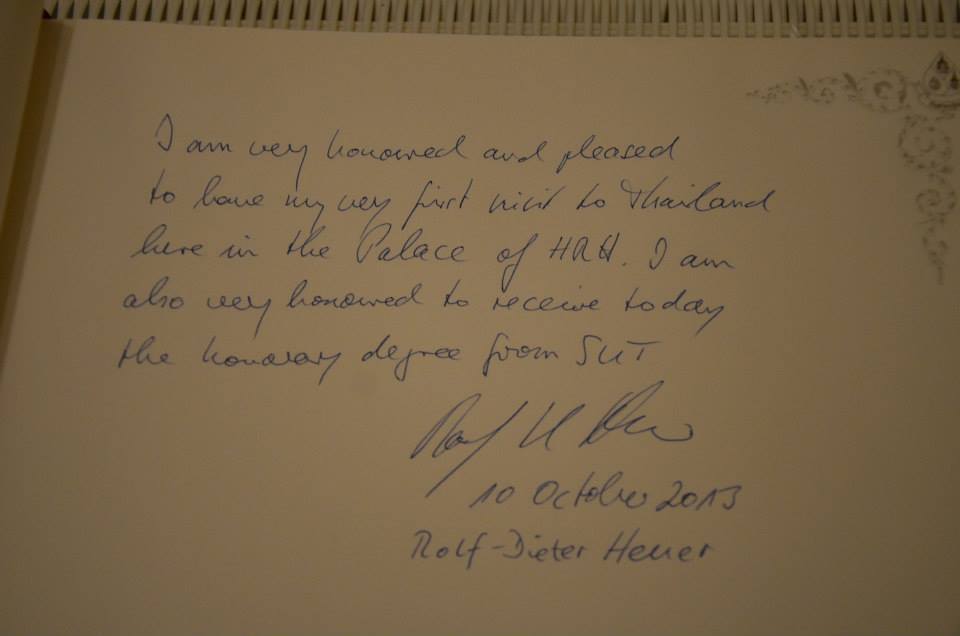 I am very honoured and pleased
to have my very first visit to Thailand
here in the Palace of HRH. I am
also very honoured to receive today
the honorary degree from SUT
10 October 2013
Rolf-Dieter Heuer